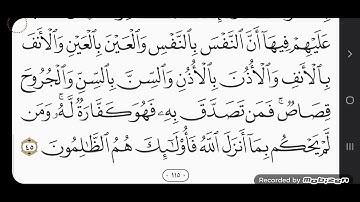 عَلَيْهِمْ فِيهَآ أَنَّ ٱلنَّفْسَ بِٱلنَّفْسِ وَٱلْعَيْنَ بِٱلْعَيْنِ وَٱلْأَنفَ
بِٱلْأَنفِ وَٱلْأُذُنَ بِٱلْأُذُنِ وَٱلسِّنَّ بِٱلسِّنِّ وَٱلْجُرُوحَ
قِصَاصٌۚ فَمَن تَصَدَّقَ بِهِۦ فَهُوَ كَفَّارَةٌ لَّهُۥۚ وَمَن
لَّمْ يَحْكُم بِمَآ أَنزَلَ ٱللَّهُ فَأُو۟لَٰٓئِكَ هُمُ ٱلظَّٰلِمُونَ ٤٥
١١٥
Recorded by
Mobizen